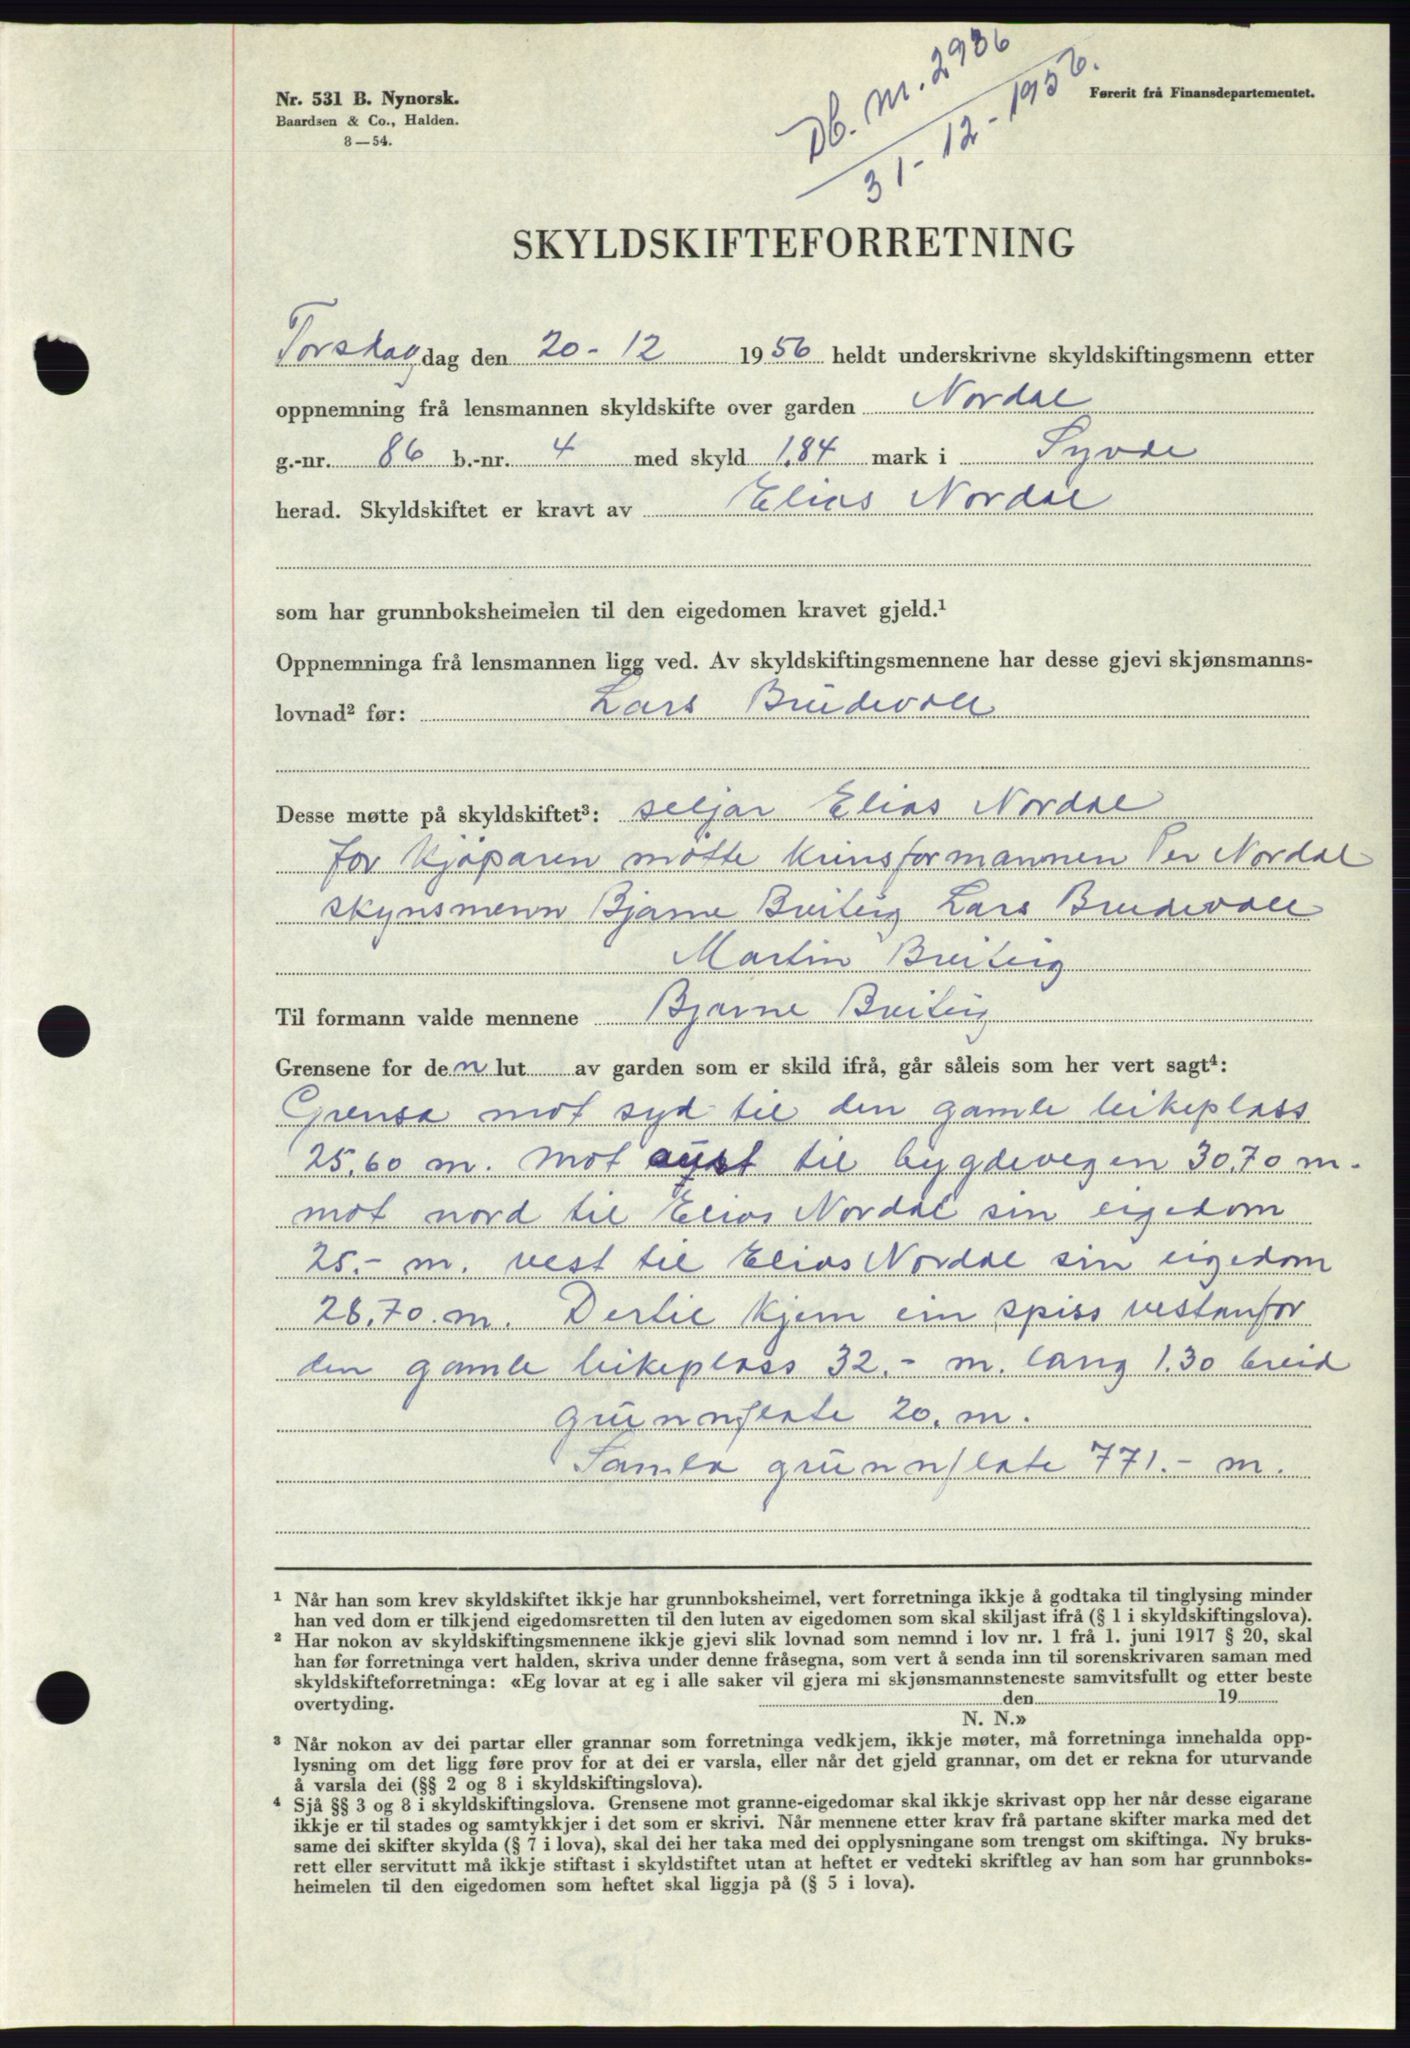 Nr. 531 B. Nynorsk.
Baardsen & Co., Halden.
8—54.
Db. nr. 2936
31-12-1956.
Førerit frå Finansdepartementet.
SKYLDSKIFTEFORRETNING
Torsdag dag den 20-12 1956 heldt underskrivne skyldskiftingsmenn etter
oppnemning frå lensmannen skyldskifte over garden Nordal
g.-nr. 86 b.-nr. 4 med skyld 1,84 mark i Syvde
herad. Skyldskiftet er kravt av Elias Nordal
som har grunnboksheimelen til den eigedomen kravet gjeld.¹
Oppnemninga frå lensmannen ligg ved. Av skyldskiftingsmennene har desse gjevi skjønsmanns-
lovnad² før: Lars Brudevoll
Desse møtte på skyldskiftet³: seljar Elias Nordal
for kjøparen møtte krinsformannen Per Nordal
skynsmenn Bjarne Breiteig Lars Brudevoll
Martin Breiteig
Til formann valde mennene Bjarne Breiteig
Grensene for den lut av garden som er skild ifrå, går såleis som her vert sagt⁴:
Grensa mot syd til den gamle leikeplass
25,60 m. mot aust til bygdevegen 30,70 m.
mot nord til Elias Nordal sin eigedom
25.- m. vest til Elias Nordal sin eigedom
28,70 m. Dertil kjem ein spiss vestanfor
den gamle leikeplass 32.- m. lang 1.30 breid
grunnflate 20. m.
Samla grunnflate 771.- m.
¹ Når han som krev skyldskiftet ikkje har grunnboksheimel, vert forretninga ikkje å godtaka til tinglysing minder
han ved dom er tilkjend eigedomsretten til den luten av eigedomen som skal skiljast ifrå (§ 1 i skyldskiftingslova).
² Har nokon av skyldskiftingsmennene ikkje gjevi slik lovnad som nemnd i lov nr. 1 frå 1. juni 1917 § 20, skal
han før forretninga vert halden, skriva under denne fråsegna, som vert å senda inn til sorenskrivaren saman med
skyldskifteforretninga: «Eg lovar at eg i alle saker vil gjera mi skjønsmannsteneste samvitsfullt og etter beste
overtyding. den 19
N. N.»
³ Når nokon av dei partar eller grannar som forretninga vedkjem, ikkje møter, må forretninga innehalda opp-
lysning om det ligg føre prov for at dei er varsla, eller når det gjeld grannar, om det er rekna for uturvande
å varsla dei (§§ 2 og 8 i skyldskiftingslova).
⁴ Sjå §§ 3 og 8 i skyldskiftingslova. Grensene mot granne-eigedomar skal ikkje skrivast opp her når desse eigarane
ikkje er til stades og samtykkjer i det som er skrivi. Når mennene etter krav frå partane skifter marka med det
same dei skifter skylda (§ 7 i lova), skal dei her taka med dei opplysningane som trengst om skiftinga. Ny bruks-
rett eller servitutt må ikkje stiftast i skyldstiftet utan at heftet er vedteki skriftleg av han som har grunnboks-
heimelen til den eigedomen som heftet skal liggja på (§ 5 i lova).